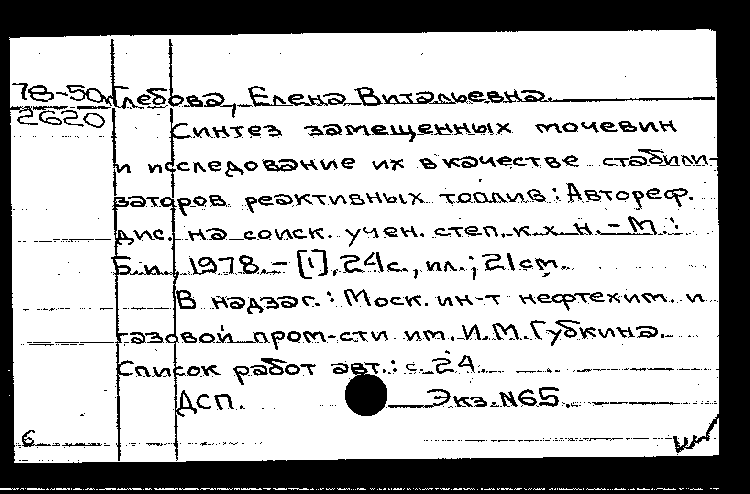 78-50к Глебова, Елена Витальевна.
2620
Синтез замещенных мочевин
и исследование их в качестве стабили-
заторов реактивных топлив: Автореф.
дис. на соиск. учен. степ. к.х.н. - М.:
Б.и., 1978. - [1], 24 с., ил.; 21 см.
В надзаг.: Моск. ин-т нефтехим. и
газовой пром-сти им. И.М. Губкина.
Список работ авт.: с. 24.
ДСП. Экз. N65.
6